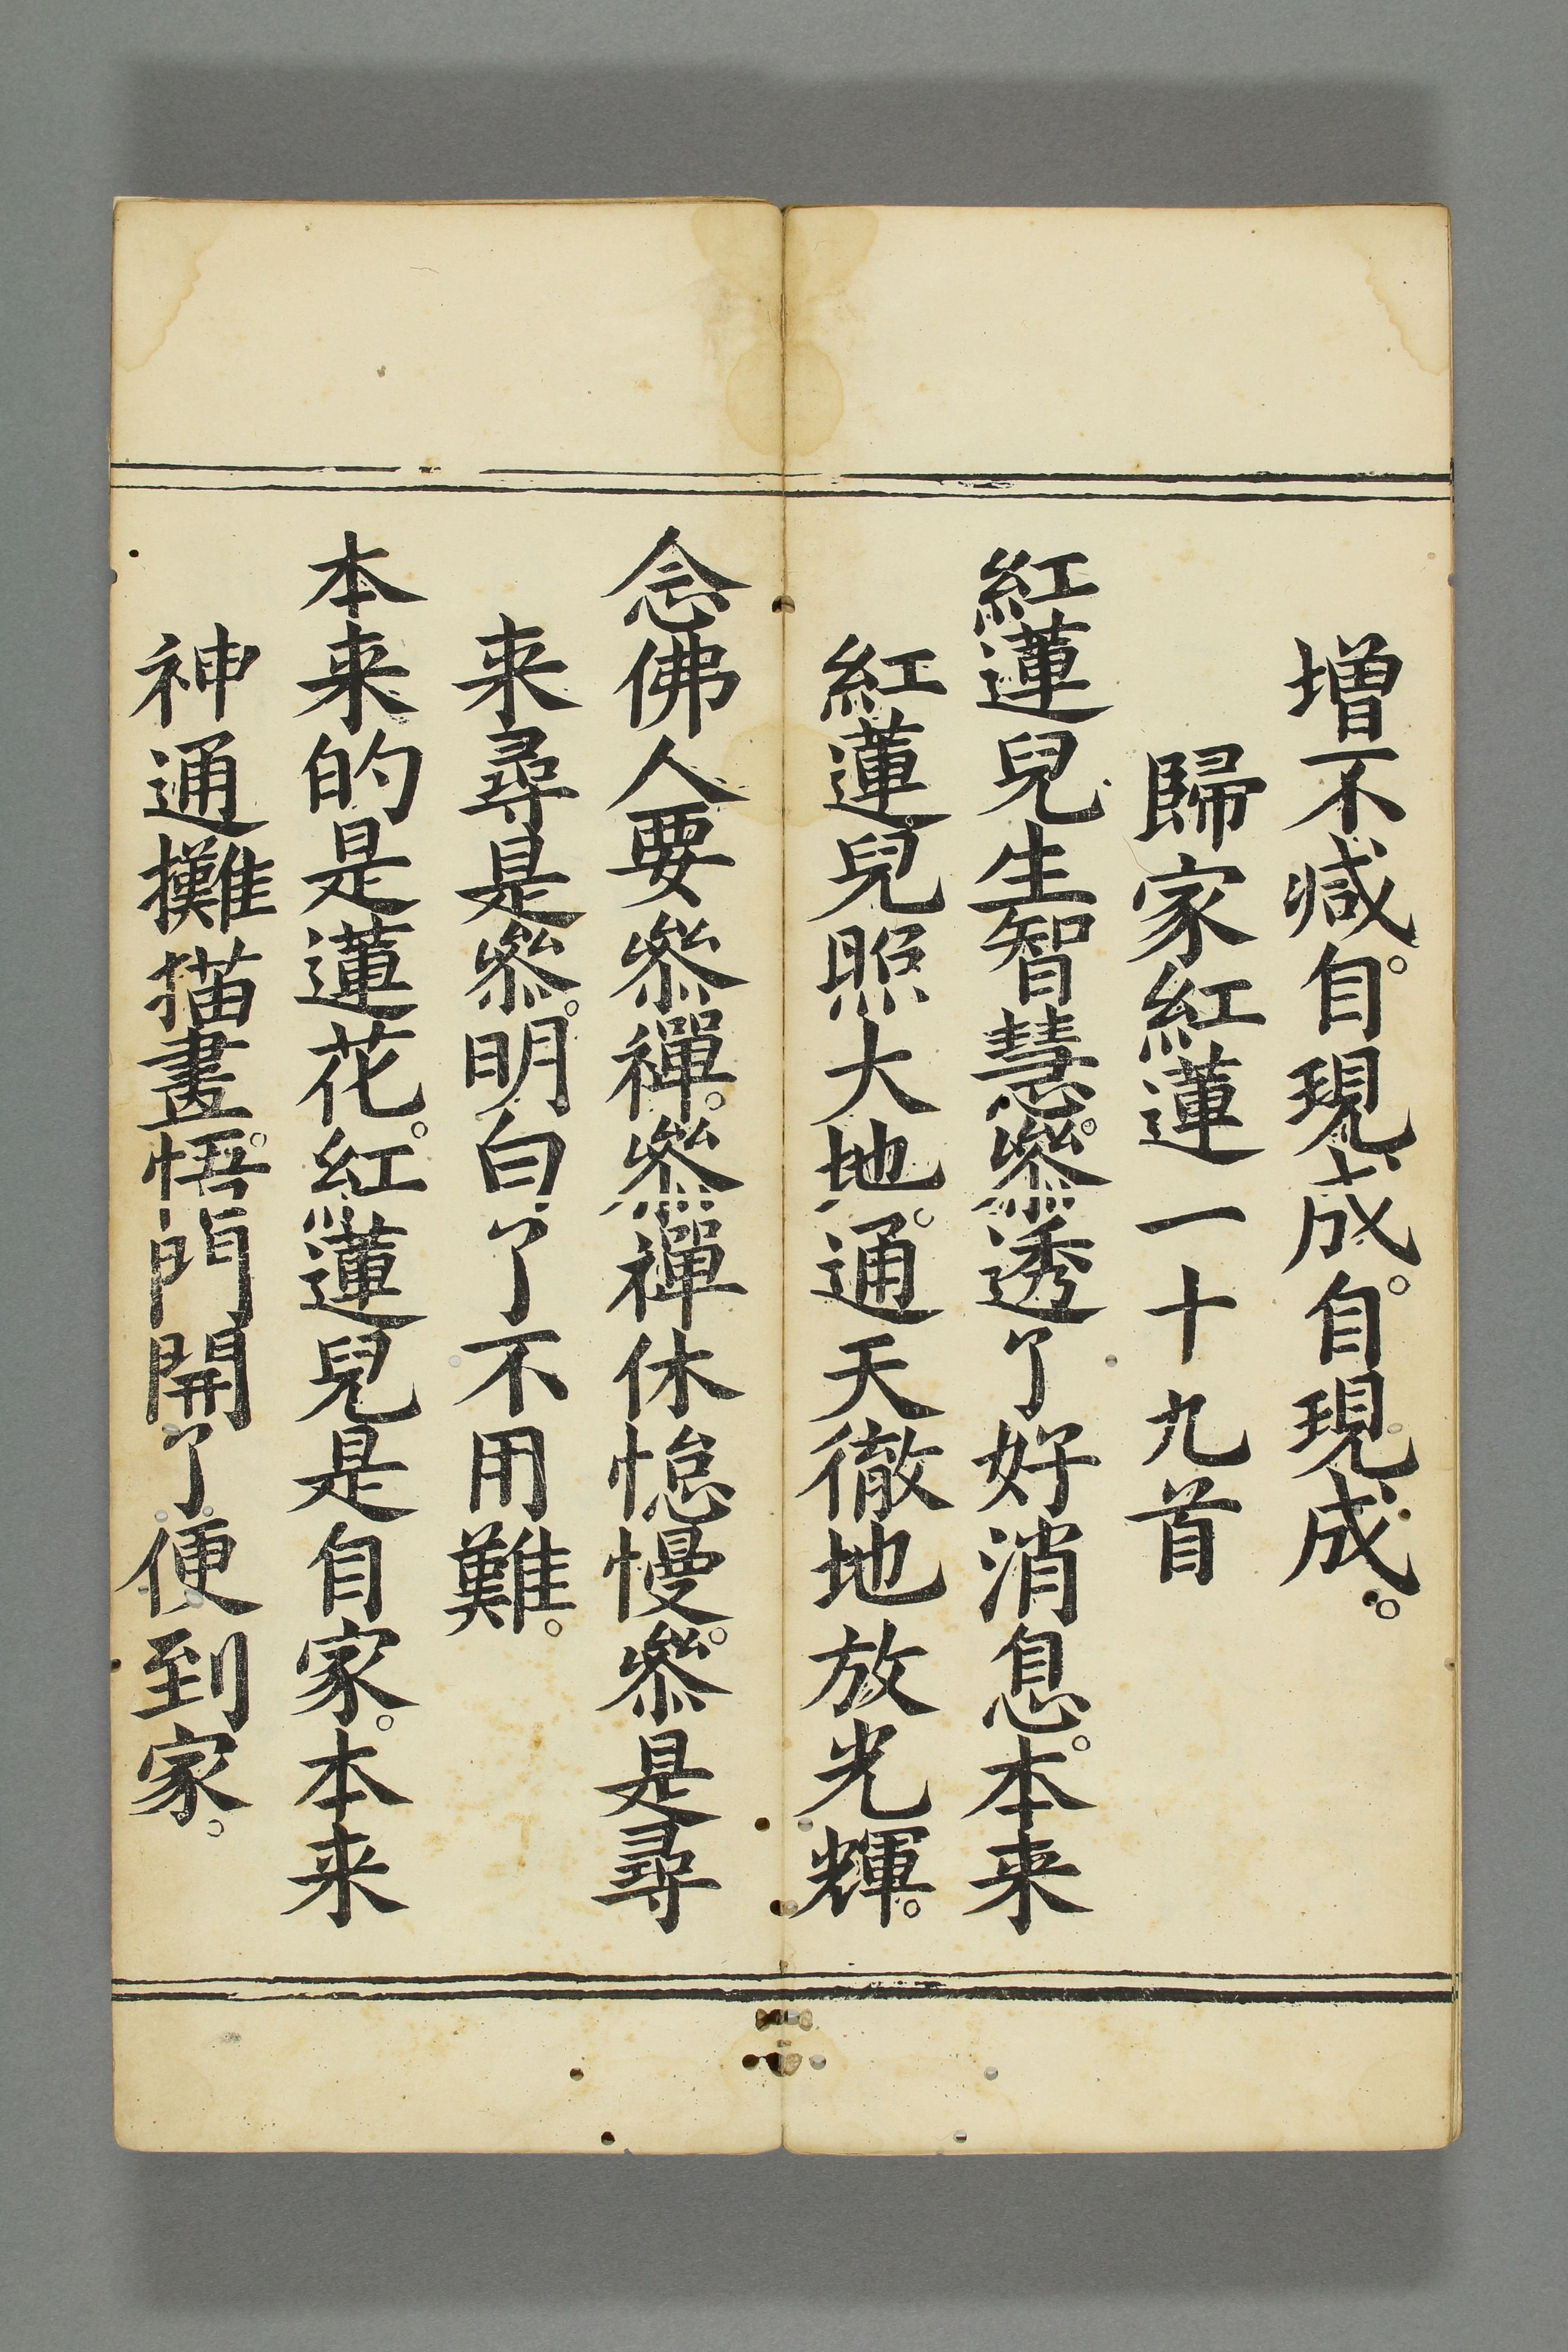 增不减。自現成。自現成。
歸家紅蓮一十九首
紅蓮兒生智慧。叅透了好消息。本来
紅蓮兒照大地。通天徹地放光輝。
念佛人要叅禪。叅禪休怠慢。叅是尋
来尋是叅。明白了不用難。
本来的是蓮花。紅蓮兒是自家。本来
神通攤描畫。悟門開了便到家。